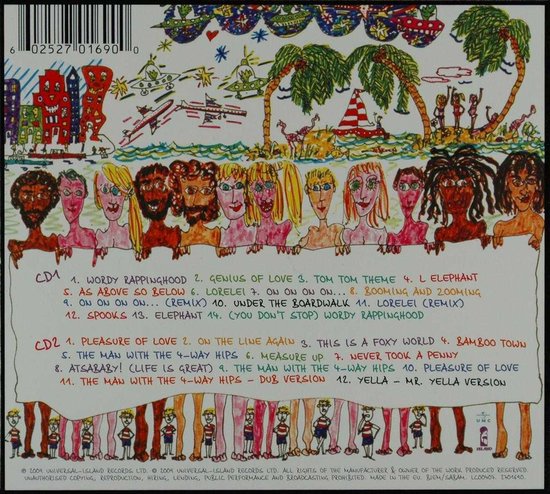 6 02527 01690 0
CD1 1. WORDY RAPPINGHOOD 2. GENIUS OF LOVE 3. TOM TOM THEME 4. L ELEPHANT
5. AS ABOVE SO BELOW 6. LORELEI 7. ON ON ON ON... 8. BOOMING AND ZOOMING
9. ON ON ON ON... (REMIX) 10. UNDER THE BOARDWALK 11. LORELEI (REMIX)
12. SPOOKS 13. ELEPHANT 14. (YOU DON'T STOP) WORDY RAPPINGHOOD
CD2 1. PLEASURE OF LOVE 2. ON THE LINE AGAIN 3. THIS IS A FOXY WORLD 4. BAMBOO TOWN
5. THE MAN WITH THE 4-WAY HIPS 6. MEASURE UP 7. NEVER TOOK A PENNY
8. ATSABABY! (LIFE IS GREAT) 9. THE MAN WITH THE 4-WAY HIPS 10. PLEASURE OF LOVE
11. THE MAN WITH THE 4-WAY HIPS - DUB VERSION 12. YELLA - MR. YELLA VERSION
UMC
ISLAND
℗ 2009 UNIVERSAL-ISLAND RECORDS LTD. © 2009 UNIVERSAL-ISLAND RECORDS LTD. ALL RIGHTS OF THE MANUFACTURER & OWNER OF THE WORK REPRODUCED RESERVED.
UNAUTHORISED COPYING, REPRODUCTION, HIRING, LENDING, PUBLIC PERFORMANCE AND BROADCASTING PROHIBITED. MADE IN THE EU. BIEM/SABAM.